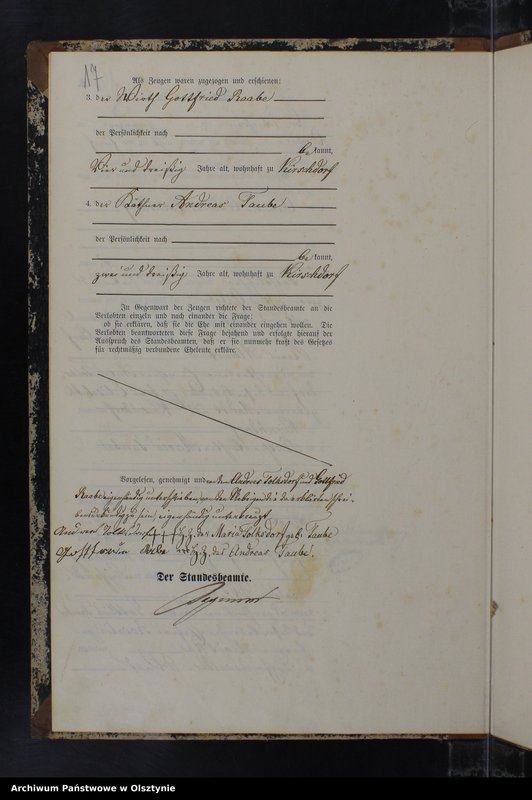 17
Als Zeugen waren zugezogen und erschienen:
3. der Wirth Gottfried Raabe
der Persönlichkeit nach
be kannt,
Vier und dreißig Jahre alt, wohnhaft zu Kirschdorf
4. der Käthner Andreas Taube
der Persönlichkeit nach
be kannt,
zwei und dreißig Jahre alt, wohnhaft zu Kirschdorf
In Gegenwart der Zeugen richtete der Standesbeamte an die
Verlobten einzeln und nach einander die Frage:
ob sie erklären, daß sie die Ehe mit einander eingehen wollen. Die
Verlobten beantworteten diese Frage bejahend und erfolgte hierauf der
Ausspruch des Standesbeamten, daß er sie nunmehr kraft des Gesetzes
für rechtmäßig verbundene Eheleute erkläre.
Vorgelesen, genehmigt und von dem Andreas Tolksdorf und Gottfried
Raabe eigenhändig unterschrieben, von den Uebrigen die da erklären schrei-
bensunkundig zu sein, eigenhändig unterkreuzt
Andreas Tolksdorf +++ H.Z. der Maria Tolksdorf geb. Taube
Gottfried Rabe +++ H.Z. des Andreas Taube.
Der Standesbeamte.
Archiwum Państwowe w Olsztynie